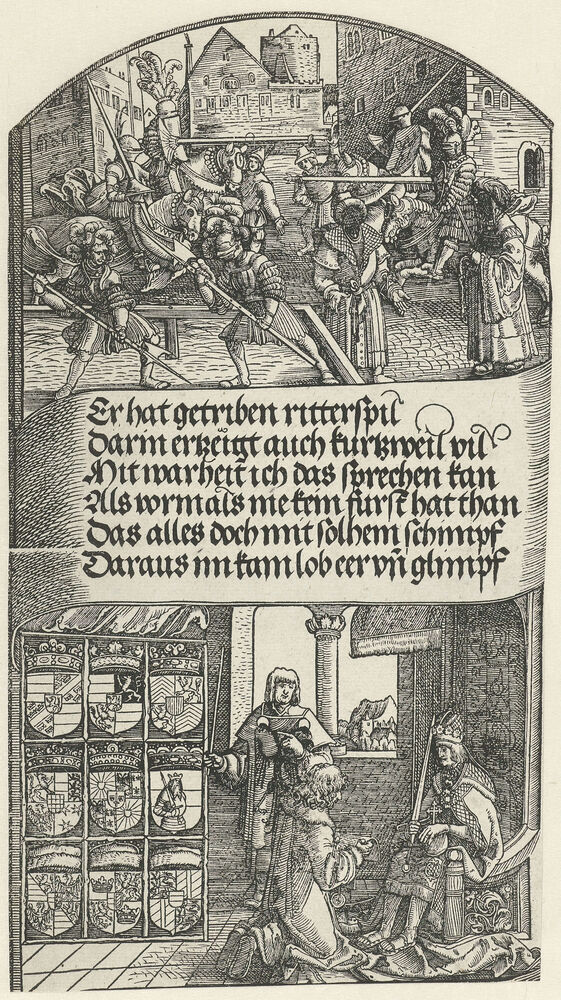 Er hat getriben ritterspil
Darin erzeigt auch kurtzweil vil
Mit warheit ich das sprechen kan
Als vormals nie kein furst hat than
Das alles doch mit solhem schimpf
Daraus im kam lob eer vn̄ glimpf